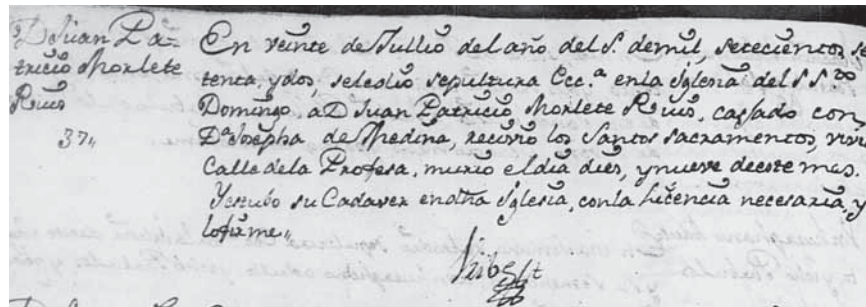 D Juan Pa=
tricio Morlete
Ruis
37,,
En veinte de Jullio del año del S. demil, setecientos, se
tenta, ydos, seledio sepultura Ecc.ª enla Yglesia del S S.to
Domingo, a D Juan Patricio Morlete Ruis, cassado con
D.ª Josepha de Medina, recivio los Santos sacramentos, vivia
Calle dela Profesa, murio el dia dies, ynueve de este mes.
Yestubo su Cadaver en dha Yglesia, conla Licencia necesaria, y
lo firme,,